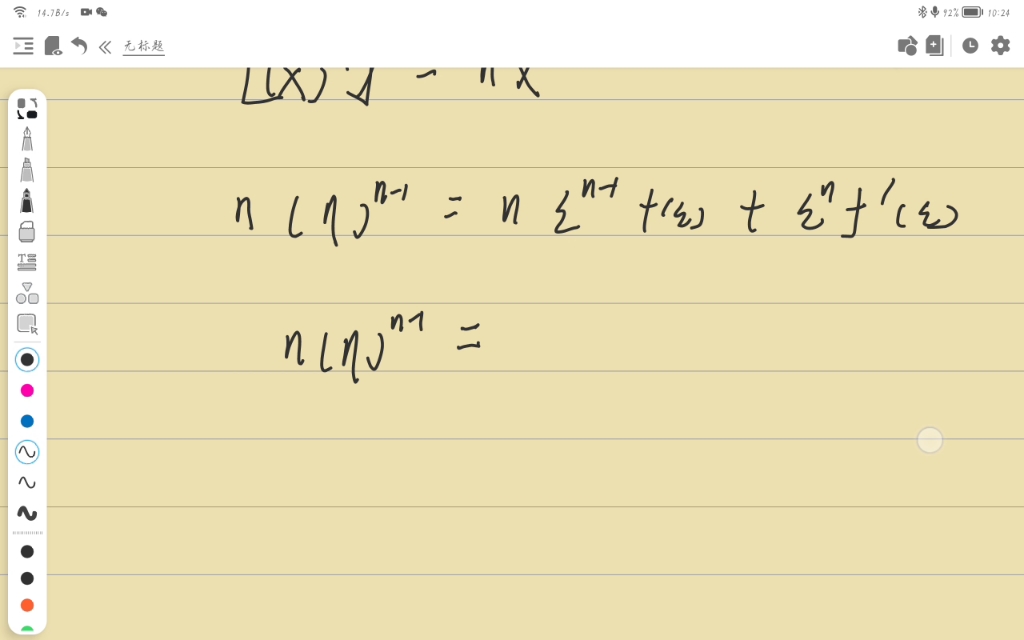 14.7B/s 92% 10:24
无标题
n(η)^{n-1} = n ξ^{n-1} f(ξ) + ξ^n f'(ξ)
n(η)^{n-1} =